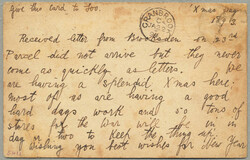 give this card to Loo. Xmas day
CRANBROOK 189
Received letter from Brooksden on 23rd
Parcel did not arrive but they never
come as quickly as letters. We
are having a splendid Xmas here
most of us are having a good
hard days work and so tons of
stores for the War will be in in
day or two to keep the thing up.
Wishing you best wishes for New Year